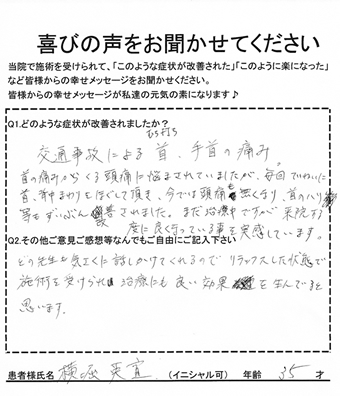 喜びの声をお聞かせてください
当院で施術を受けられて、「このような症状が改善された」「このように楽になった」
など皆様からの幸せメッセージをお聞かせください。
皆様からの幸せメッセージが私達の元気の素になります♪
Q1.どのような症状が改善されましたか?
むち打ち
交通事故による首、手首の痛み。
首の痛みからくる頭痛に悩まされていましたが、毎回ていねいに
首、背中まわりをほぐして頂き、今では頭痛も無くなり、首のハリ
等もずいぶん改善されました。まだ治療中ですが来院する
度に良くなっている事を実感しています。
Q2.その他ご意見ご感想等なんでもご自由にご記入下さい
どの先生も気さくに話しかけてくれるので リラックスした状態で
施術を受けられ 治療にも良い効果を生んでいると
思います。
患者様氏名 横尾 (イニシャル可) 年齢 35 才